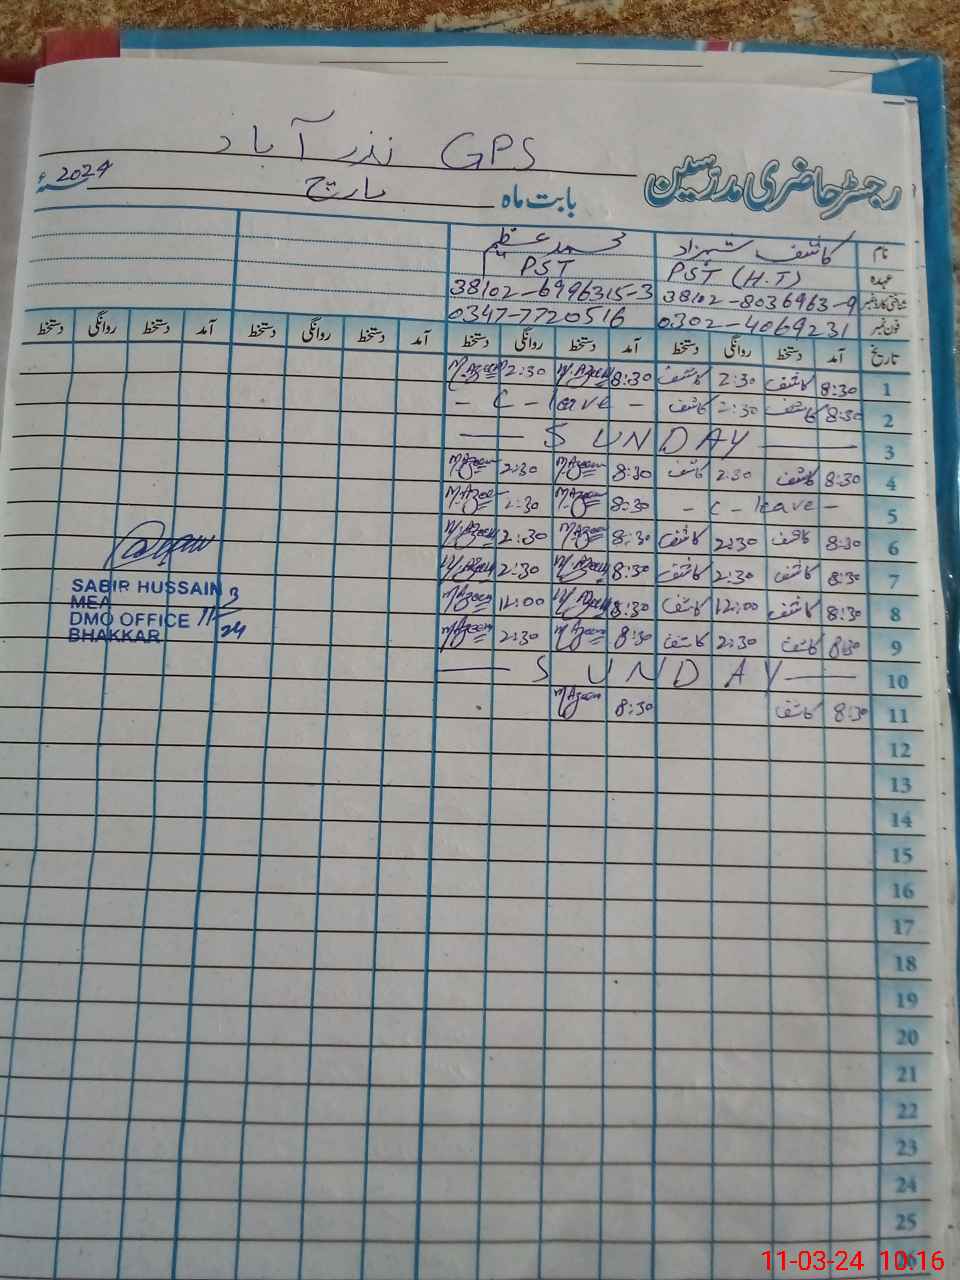 GPS نذر آباد
رجسٹر حاضری مدرسین
بابت ماہ مارچ 2024ء
نام کاشف شہزاد محمد عظیم
عہدہ PST (H.T) PST
شناختی کارڈ نمبر 38102-8036963-9 38102-6996315-3
فون نمبر 0302-4069231 0347-7720516
تاریخ آمد دستخط روانگی دستخط آمد دستخط روانگی دستخط آمد دستخط روانگی دستخط آمد دستخط روانگی دستخط
1 8:30 کاشف 2:30 کاشف 8:30 M.Azeem 2:30 M.Azeem
2 8:30 کاشف 2:30 کاشف - C - leave -
3 SUNDAY
4 8:30 کاشف 2:30 کاشف 8:30 M.Azeem 2:30 M.Azeem
5 - C - leave - 8:30 M.Azeem 2:30 M.Azeem
6 8:30 کاشف 2:30 کاشف 8:30 M.Azeem 2:30 M.Azeem
7 8:30 کاشف 2:30 کاشف 8:30 M.Azeem 2:30 M.Azeem
8 8:30 کاشف 12:00 کاشف 8:30 M.Azeem 12:00 M.Azeem
9 8:30 کاشف 2:30 کاشف 8:30 M.Azeem 2:30 M.Azeem
10 SUNDAY
11 8:30 کاشف 8:30 M.Azeem
12
13
14
15
16
17
18
19
20
21
22
23
24
25
26
SABIR HUSSAIN
MEA
DMO OFFICE
BHAKKAR
11/3/24
11-03-24 10:16